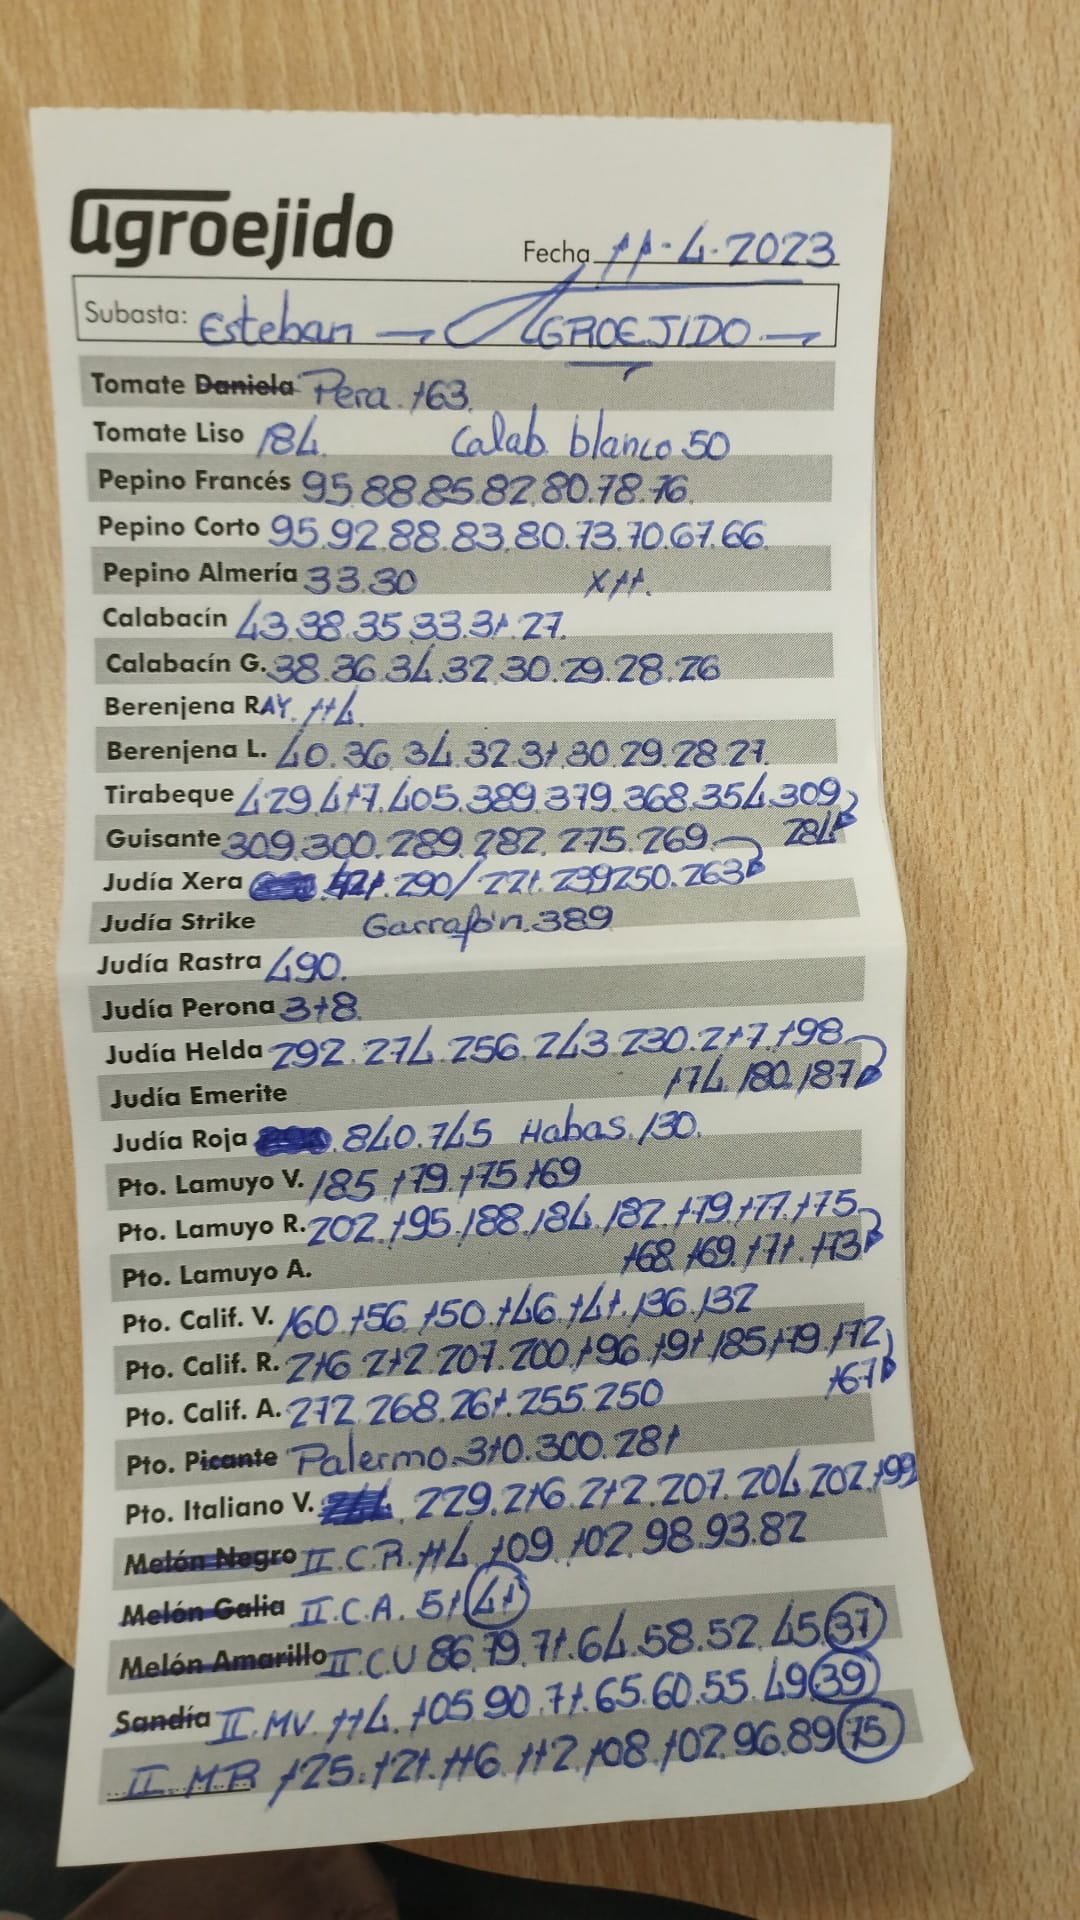 agroejido
Fecha 11-4-2023
Subasta: Esteban → AGROEJIDO.→
Tomate Daniela Pera. 163.
Tomate Liso 184. Calab. blanco 50
Pepino Francés 95.88.85.82.80.78.76.
Pepino Corto 95.92.88.83.80.73.70.67.66.
Pepino Almería 33.30 X11.
Calabacín 43.38.35.33.31.27.
Calabacín G. 38.36.34.32.30.29.28.26
Berenjena RAY. 114.
Berenjena L. 40.36.34.32.31.30.29.28.27.
Tirabeque 429.417.405.389.379.368.354.309
284
Guisante 309.300.289.282.275.269
Judía Xera 290/221.239250.263
Judía Strike Garrafón.389
Judía Rastra 490.
Judía Perona 318.
Judía Helda 292.274.256.243.230.217.198
174.180.187
Judía Emerite
Judía Roja .840.745 Habas.130.
Pto. Lamuyo V. 185.179.175.169
Pto. Lamuyo R. 202.195.188.184.182.179.177.175
168.169.171.173
Pto. Lamuyo A.
Pto. Calif. V. 160.156.150.146.141.136.132
Pto. Calif. R. 216.212.207.200.196.191.185.179.172
167
Pto. Calif. A. 272.268.261.255.250
Pto. Picante Palermo.310.300.281
Pto. Italiano V. 229.216.212.207.204.202.199
Melón Negro II.C.R.114.109.102.98.93.82
Melón Galia II.C.A. 51 41
Melón Amarillo II.C.U 86.79.71.64.58.52.45 37
Sandía II.MV. 114.105.90.71.65.60.55.49 39
II.MR 125.121.116.112.108.102.96.89 75